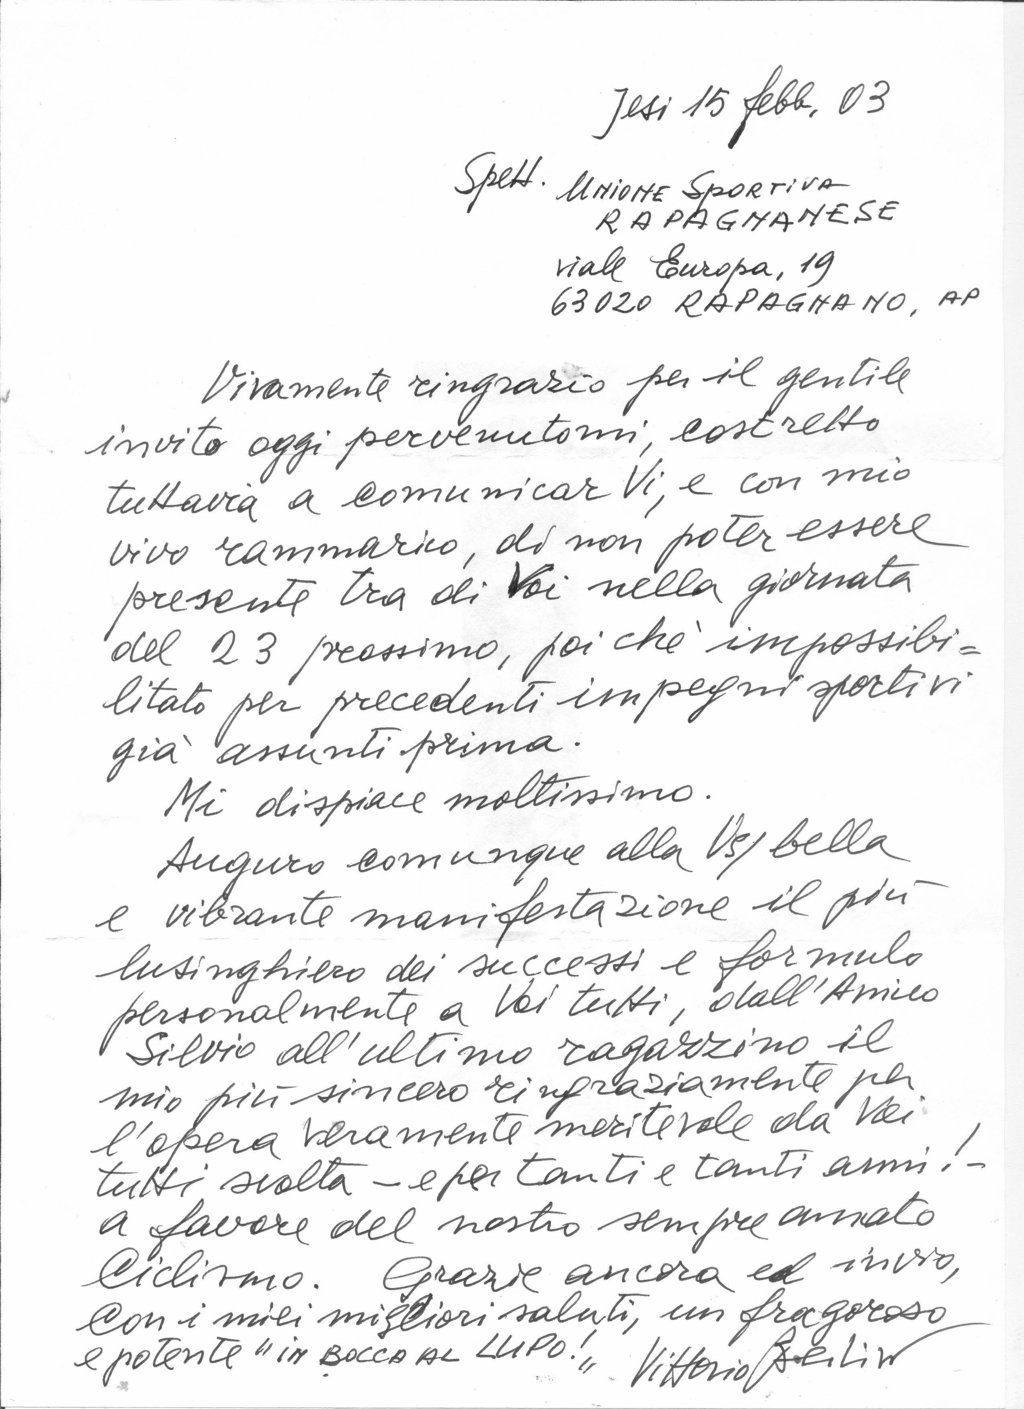 Jesi 15 febb. 03
Spett. UNIONE SPORTIVA
RAPAGNANESE
viale Europa, 19
63020 RAPAGNANO, AP
Vivamente ringrazio per il gentile
invito oggi pervenutomi, costretto
tuttavia a comunicarVi, e con mio
vivo rammarico, di non poter essere
presente tra di Voi nella giornata
del 23 prossimo, poichè impossibi=
litato per precedenti impegni sportivi
già assunti prima.
Mi dispiace moltissimo.
Auguro comunque alla Vs/ bella
e vibrante manifestazione il più
lusinghiero dei successi e formulo
personalmente a Voi tutti, dall'Amico
Silvio all'ultimo ragazzino il
mio più sincero ringraziamente per
l'opera veramente meritevole da Voi
tutti svolta – e per tanti e tanti anni! –
a favore del nostro sempre amato
Ciclismo. Grazie ancora ed invio,
con i miei migliori saluti, un fragoroso
e potente "IN BOCCA AL LUPO!" Vittorio